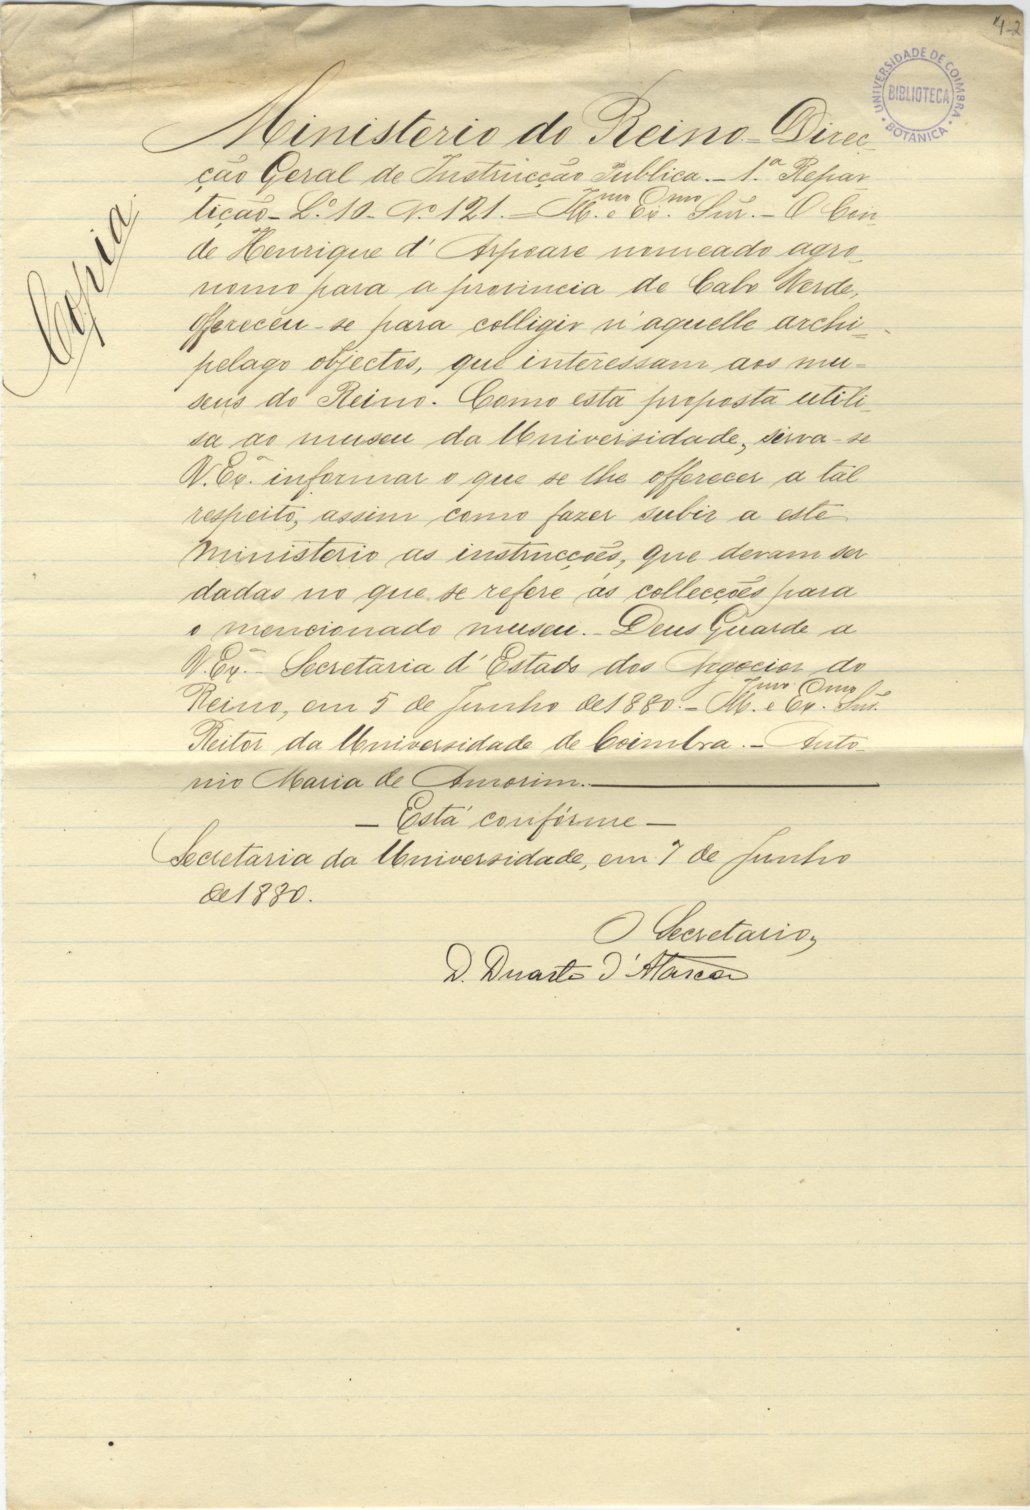 4-2
UNIVERSIDADE DE COIMBRA
BIBLIOTECA
BOTANICA
Copia
Ministerio do Reino - Direc-
ção Geral de Instrucção Publica. - 1.ª Repar-
tição - L.º 10 - N.º 121. = Ill.mo e Ex.mo Snr. - O Con-
de Henrique d'Arpoare nomeado agro-
nomo para a provincia de Cabo Verde,
offereceu-se para colligir n'aquelle archi-
pelago objectos, que interessam aos mu-
seus do Reino. Como esta proposta utili-
sa ao museu da Universidade, sirva-se
V. Ex.ª informar o que se lhe offerecer a tal
respeito, assim como fazer subir a este
Ministerio as instrucções, que devam ser
dadas no que se refere ás collecções para
o mencionado museu. - Deus Guarde a
V. Ex.ª - Secretaria d'Estado dos Negocios do
Reino, em 5 de Junho de 1880. - Ill.mo e Ex.mo Snr.
Reitor da Universidade de Coimbra. - Anto-
nio Maria de Amorim.
- Está confórme -
Secretaria da Universidade, em 7 de Junho
de 1880.
O Secretario,
D. Duarte d'Alarcão